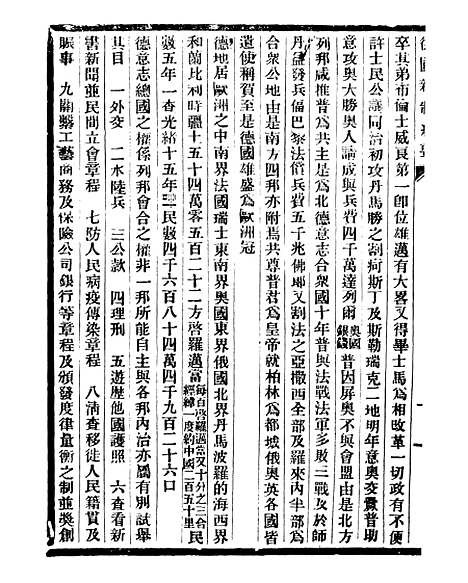 卒其弟布倫士威良第一卽位雄邁有大畧又得畢士馬爲相改革一切政有不便
許士民公議同治初攻丹馬勝之割疴斯丁及斯勒瑞克二地明年意奥交釁普助
意攻奥大勝奥人論成與兵費四千萬達列爾奥國銀錢普因屏奥不與會盟由是北方
列邦咸推普爲共主是爲北德意志合衆國十年普與法戰法軍多敗三戰及於師
丹盡發兵傴巴黎法償兵費五千兆佛郎又割法之亞撒西全部及羅來內半部爲
合衆公地由是南方四邦亦附焉共尊普君爲皇帝就柏林爲都城俄奥英各國皆
遣使稱賀至是德國雄盛爲歐洲冠
德地居歐洲之中南界法國瑞士東南界奥國東界俄國北界丹馬波羅的海西界
和蘭比利時疆土五十四萬零五百二十二方啓羅邁富每百啓羅邁當又十分之三合經緯一度約中國二百五十里民
數五年一查光緒十五年民數四千六百八十四萬四千九百二十六口
德意志總國之權係列邦會合之權非一邦所能自主與各邦內治亦屬有別試舉
其目 一外交 二水陸兵 三公款 四理刑 五遊歷他國護照 六查看新
書新聞並民間立會章程 七防人民病疫傳染章程 八淸查移徙人民籍貫及
賑事 九關繫工藝商務及保險公司銀行等章程及頒發度律量衡之制並獎創